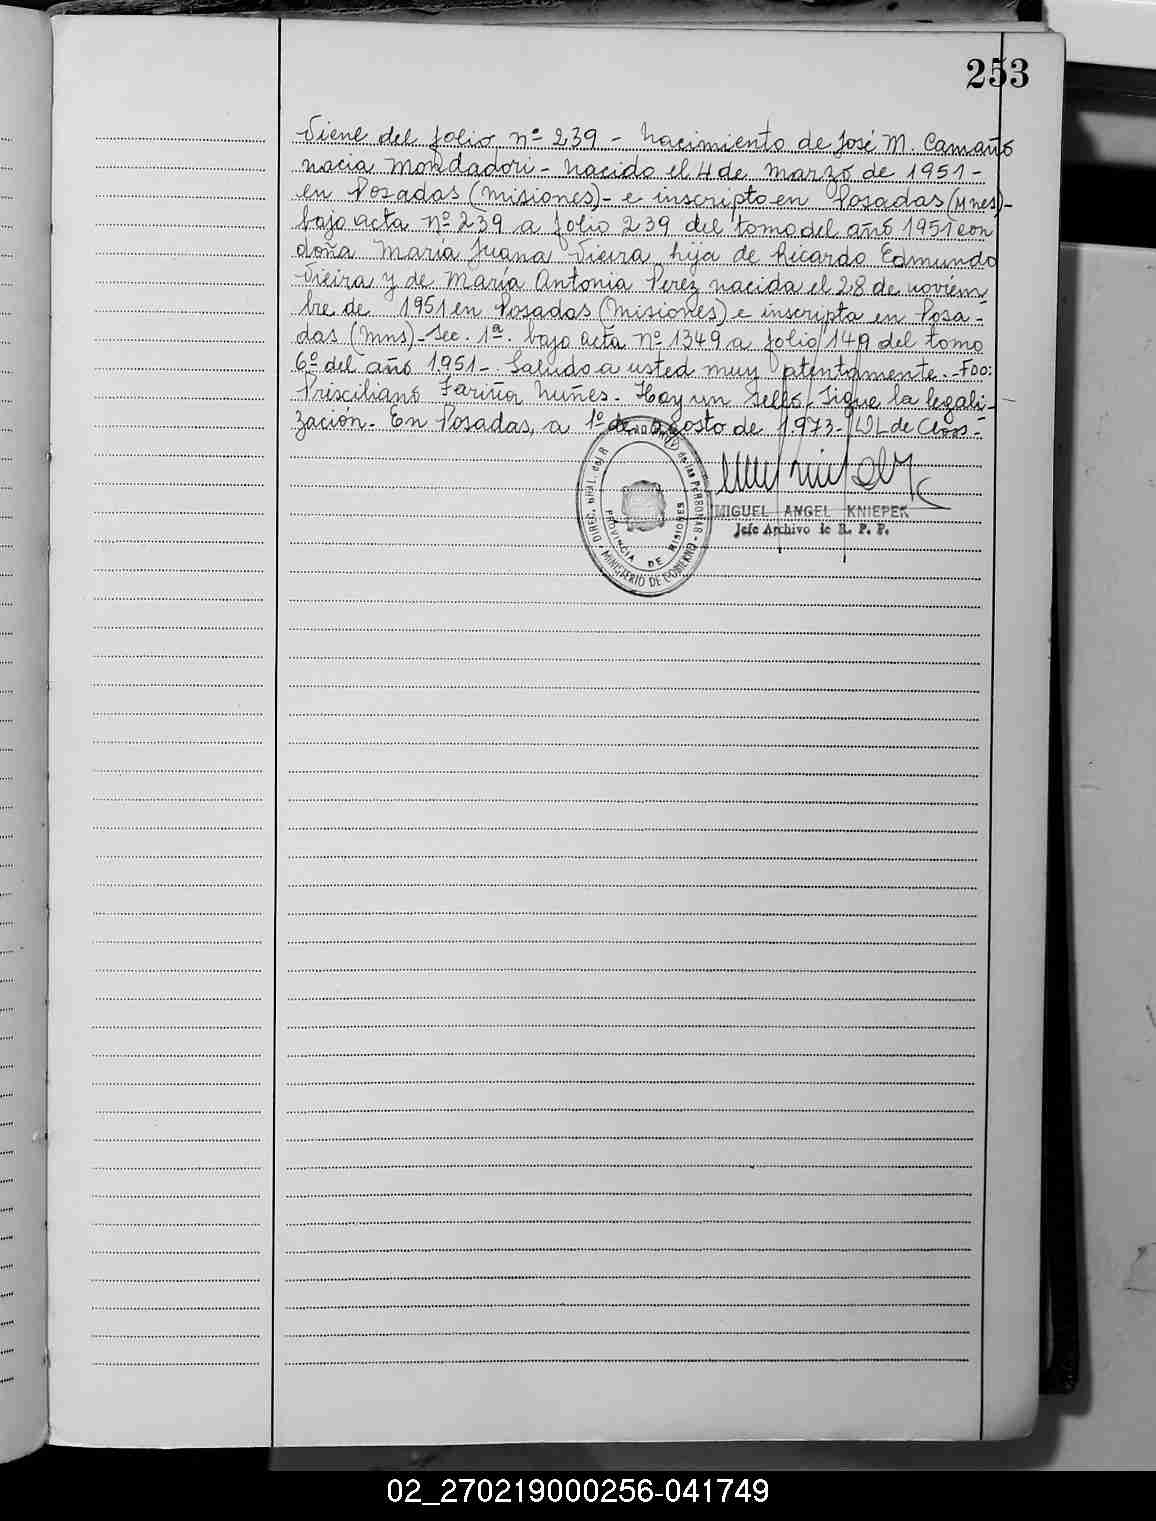 253
Viene del folio nº 239 - Nacimiento de José M. Camaño
nacia Mondadori - Nacido el 4 de marzo de 1951 -
en Posadas (Misiones) - e inscripto en Posadas (Mnes) -
bajo acta nº 239 a folio 239 del tomo del año 1951 con
doña María Juana Vieira, hija de Ricardo Edmundo
Vieira y de María Antonia Perez nacida el 28 de noviem-
bre de 1951 en Posadas (Misiones) e inscripta en Posa-
das (Mns) - Sec. 1ª. bajo acta nº 1349 a folio 149 del tomo
6º del año 1951 -. Saludo a usted muy atentamente. - Fdo:
Prisciliano Fariña Nuñes - Hay un sello - Sigue la legali-
zación. En Posadas, a 1º de agosto de 1.973 - de Closs -
DIREC. GRAL. del R de las PERSONAS
PROVINCIA DE MISIONES
MINISTERIO DE GOBIERNO
MIGUEL ANGEL KNIEPEK
Jefe Archivo de R. P. P.
02_270219000256-041749